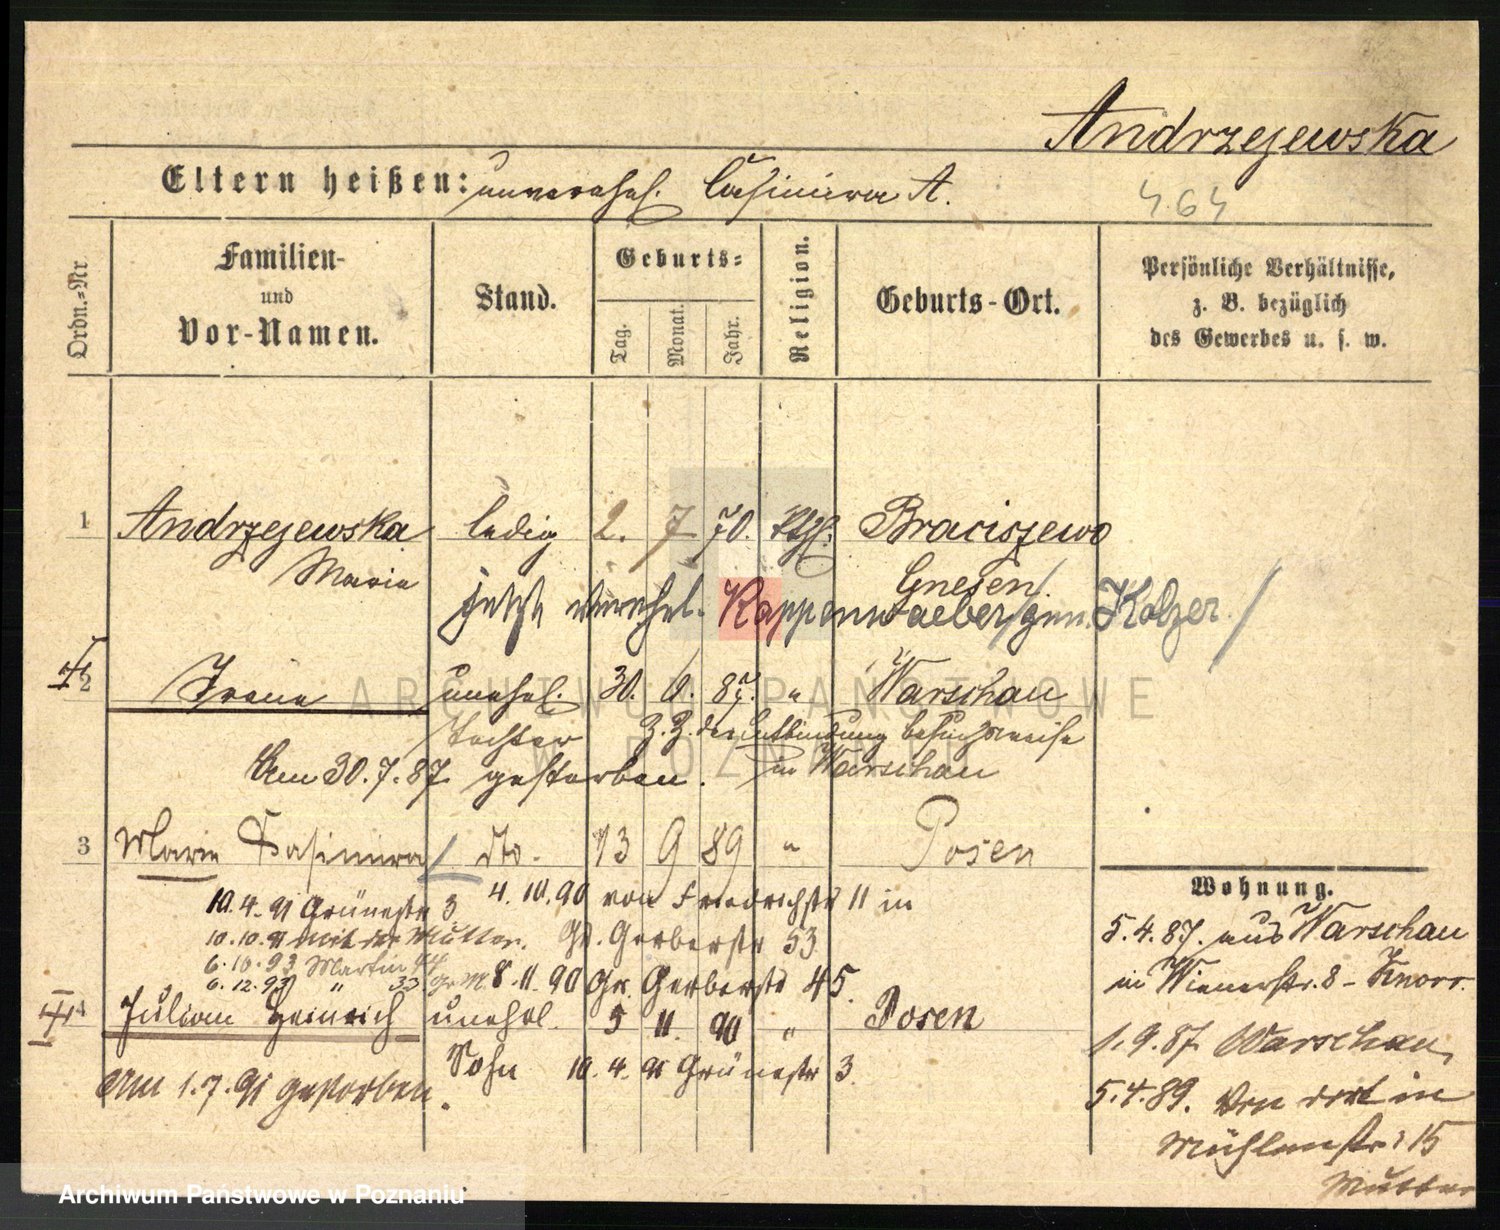 Andrzejewska
Eltern heißen: unverehel. Casimira A.
464
Ordn.=Nr.
Familien-
und
Vor-Namen.
Stand.
Geburts=
Tag.
Monat.
Jahr.
Religion.
Geburts-Ort.
Persönliche Verhältnisse,
z. B. bezüglich
des Gewerbes u. s. w.
1 Andrzejewska ledig 2. 7 70. kthl. Braciszewo
Marie Gnesen
jetzt verehel. Kappenwaeber/gen. Kolzer./
2 Irene unehel. 30. 6. 87. " Warschau
Tochter z. Z. der Entbindung besuchsweise
Am 30.7.87 gestorben. in Warschau
3 Marie Casimira do. 13 9 89 " Posen
4.10.90 von Friedrichstr 11 in
10.4.91 Grünestr 3
10.10.91 mit der Mutter. Gr. Gerberstr 53
6.10.93 Martin 44
6.12.93 " 33 8.11.90 Gr. Gerberstr 45.
4 Julian Heinrich unehel. 5 11. 90 " Posen
Sohn 10.4.91 Grünestr 3
Am 1.7.91 gestorben.
Wohnung.
5.4.87. aus Warschau
in Wienerstr. 8 - Knorr.
1.9.87 Warschau,
5.4.89. Von dort in
Mühlenstr: 15
Mutter
ARCHIWUM PAŃSTWOWE
W POZNANIU
Archiwum Państwowe w Poznaniu